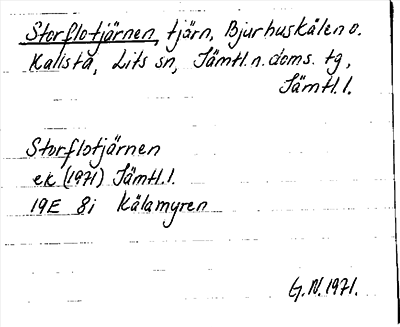 Storflotjärnen, tjärn, Bjurhuskälen o.
Kalista, Lits sn, Jämtl. n. doms. tg,
Jämtl. l.
Storflotjärnen
ek (1971) Jämtl. l.
19E 8i Kälamyren
G. N. 1971.